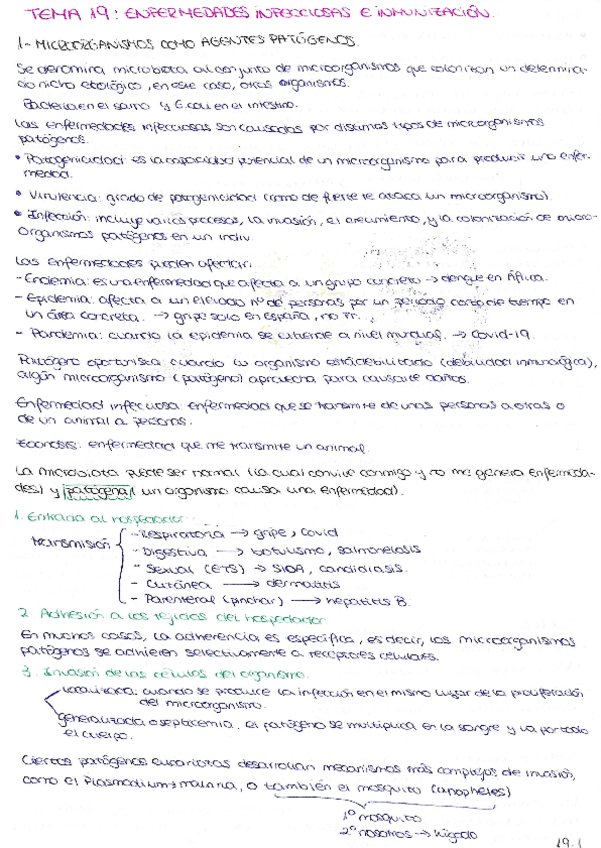 TEMA 19: ENFERMEDADES INFECCIOSAS E INMUNIZACIÓN.
1- MICROORGANISMOS COMO AGENTES PATÓGENOS.
Se denomina microbiota al conjunto de microorganismos que colonizan un determina-
do nicho ecológico, en este caso, otros organismos.
Bacteria en el sarro y E.coli en el intestino.
Las enfermedades infecciosas son causadas por distintos tipos de microorganismos
patógenos.
• Patogenicidad: es la capacidad potencial de un microorganismo para producir una enfer-
medad.
• Virulencia: grado de patogenicidad (como de fuerte te ataca un microorganismo)
• Infección: incluye varios procesos, la invasión, el crecimiento, y la colonización de micro-
organismos patógenos en un indiv.
Las enfermedades pueden afectar:
- Endemia: es una enfermedad que afecta a un grupo concreto → dengue en África.
- Epidemia: afecta a un elevado nº de personas por un periodo corto de tiempo en
un área concreta. → gripe solo en España, no Fr.
- Pandemia: cuando la epidemia se extiende a nivel mundial. → Covid-19.
Patógeno oportunista: cuando tu organismo está debilitado (debilidad inmunológica),
algún microorganismo (patógeno) aprovecha para causarte daños.
Enfermedad infecciosa: enfermedad que se transmite de unas personas a otras o
de un animal a personas.
Zoonosis: enfermedad que me transmite un animal.
La microbiota puede ser normal (la cual convive conmigo y no me genera enfermeda-
des) y patógena (un organismo causa una enfermedad).
1. Entrada al hospedador
transmisión
- Respiratoria → gripe, covid
- Digestiva → botulismo, salmonelosis
- Sexual (ETS) → SIDA, candidiasis.
- Cutánea → dermatitis
- Parenteral (pinchar) → hepatitis B.
2. Adhesión a los tejidos del hospedador
En muchos casos, la adherencia es específica, es decir, los microorganismos
patógenos se adhieren selectivamente a receptores celulares.
3. Invasión de las células del organismo.
Localizada: cuando se produce la infección en el mismo lugar de la proliferación
del microorganismo.
Generalizada o septicemia, el patógeno se multiplica en la sangre y va por todo
el cuerpo.
Ciertos patógenos eucariotas desarrollan mecanismos más complejos de invasión,
como el Plasmodium → malaria, o también el mosquito (anopheles)
1º mosquito
2º nosotros → hígado
19.1